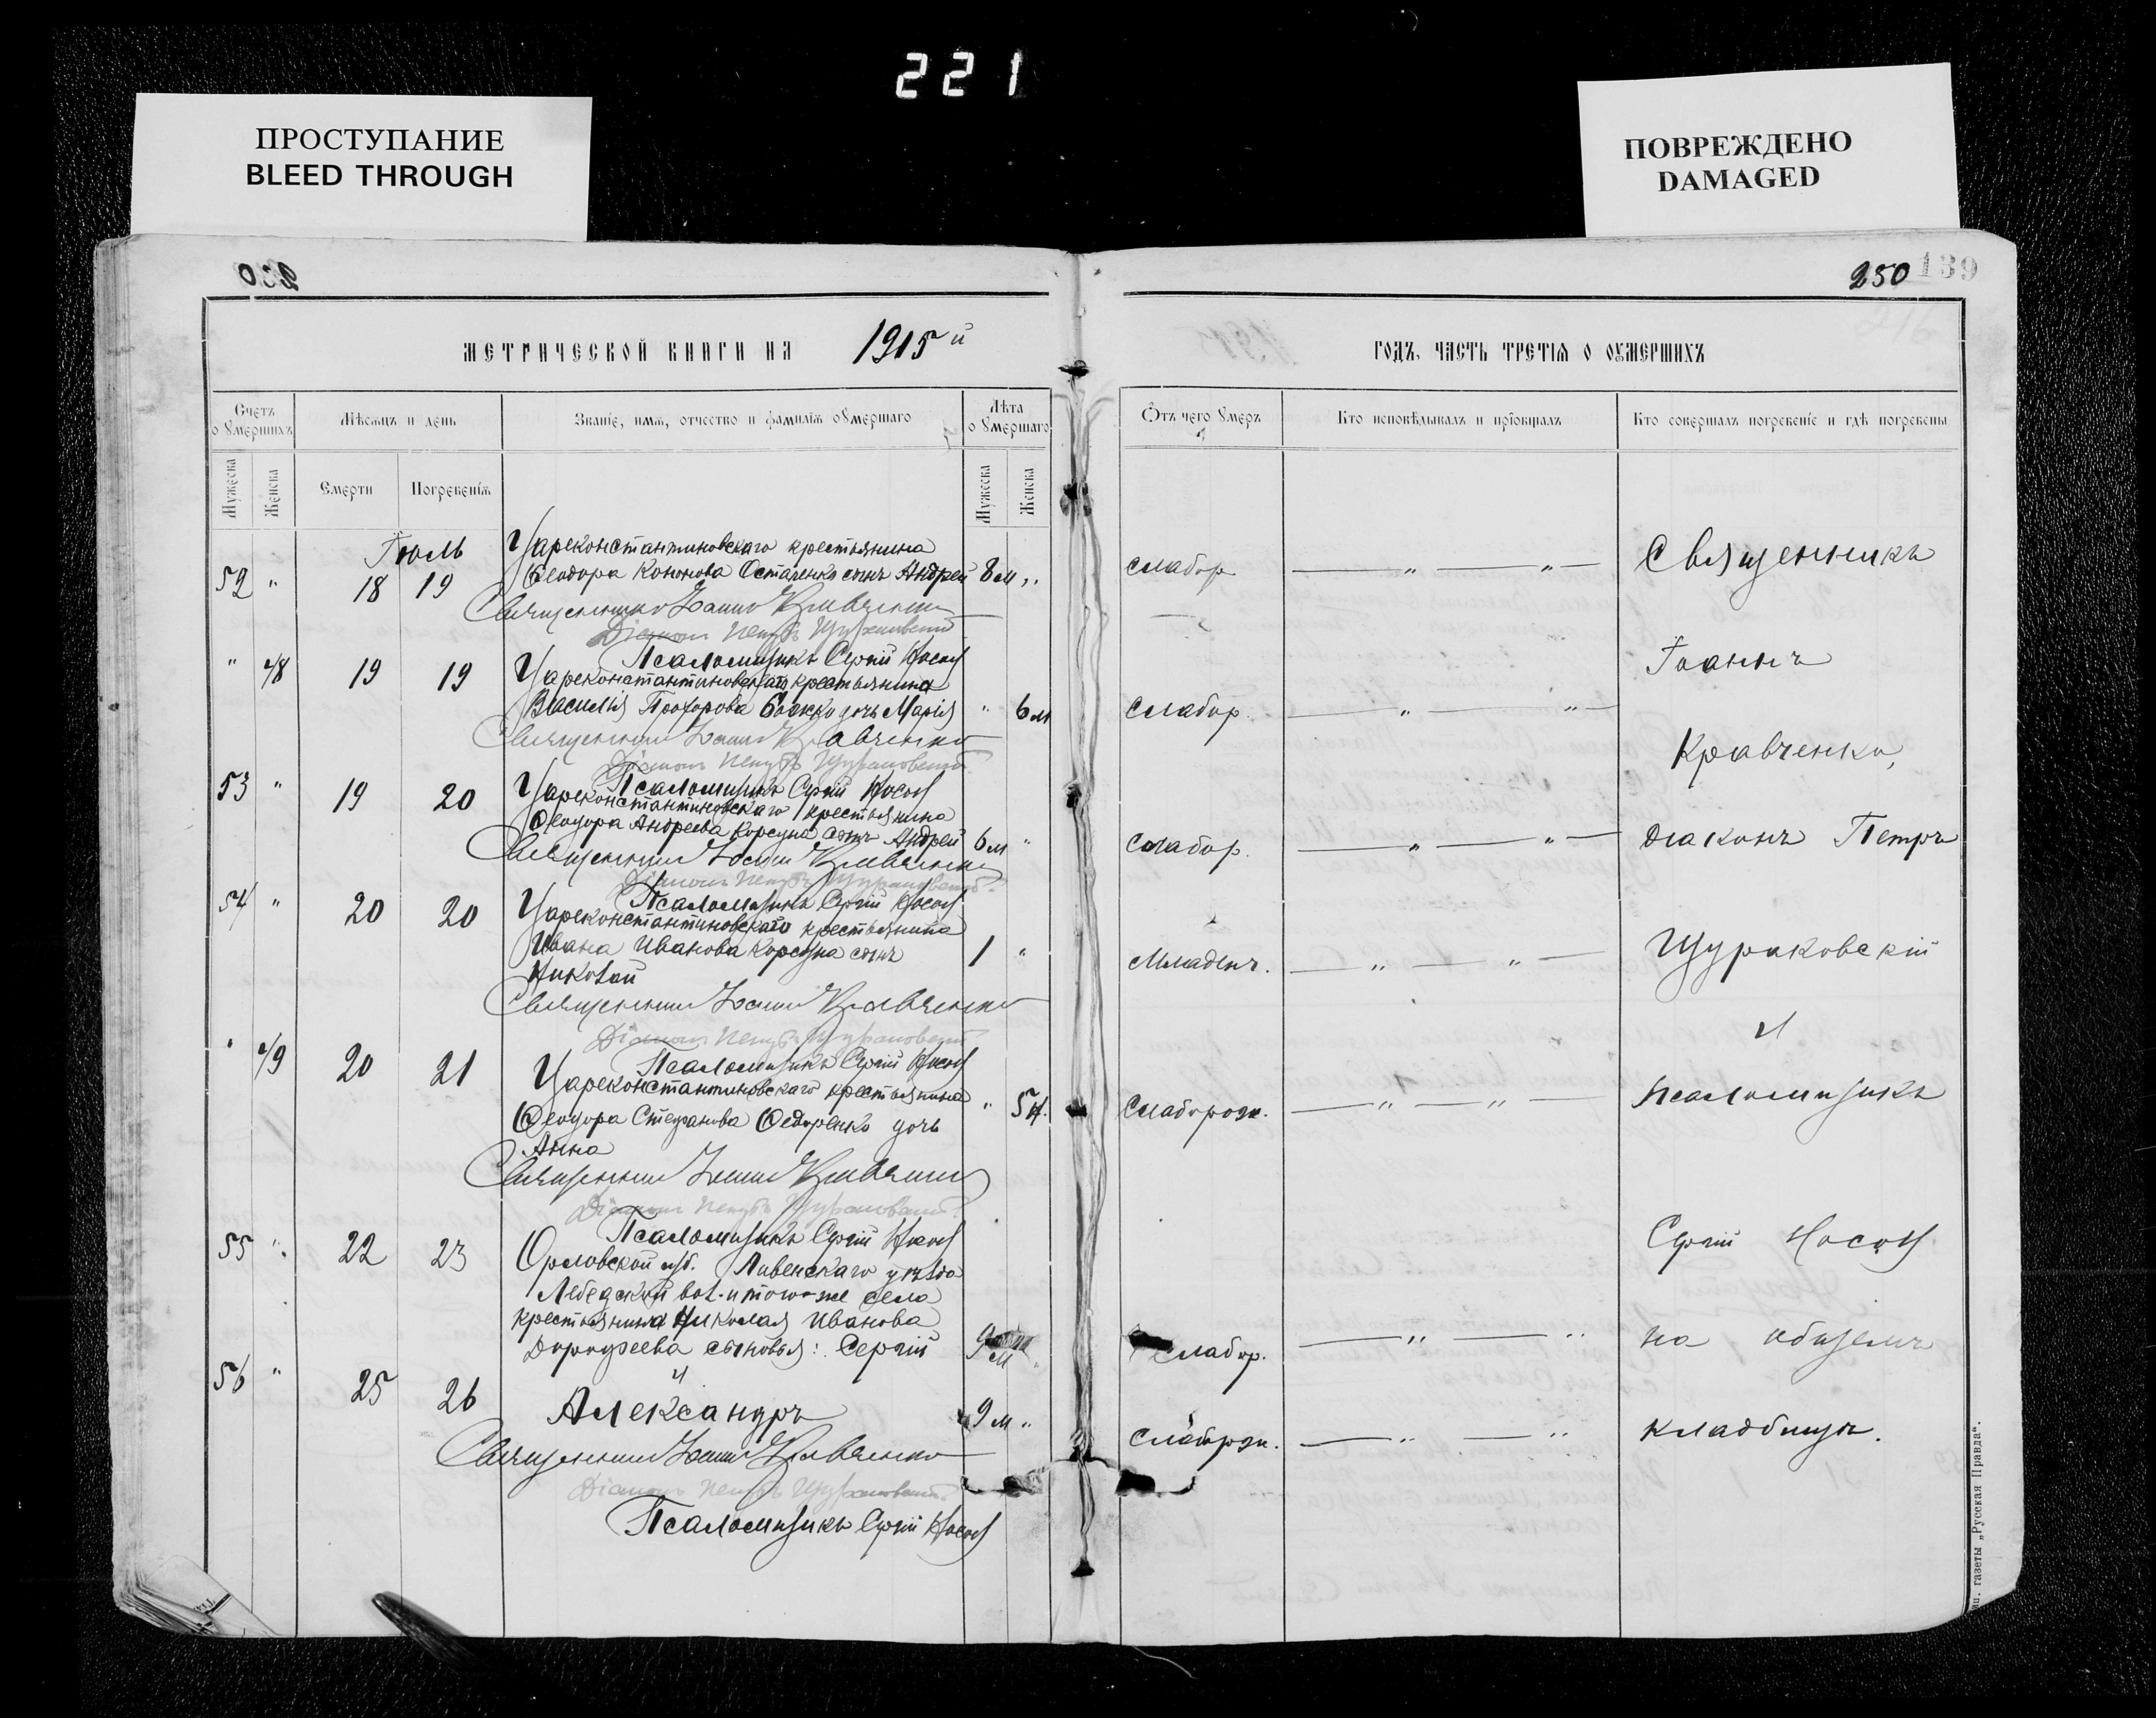 221
ПРОСТУПАНИЕ
BLEED THROUGH
ПОВРЕЖДЕНО
DAMAGED
250 139
МЕТРИЧЕСКОЙ КНИГИ НА 1915й
ГОДЪ, ЧАСТЬ ТРЕТІЯ О ОУМЕРШИХЪ
Счетъ о умершихъ
Мѣсяцъ и день
Званіе, имя, отчество и фамилія оумершаго
Лѣта оумершаго
Отъ чего умеръ
Кто исповѣдывалъ и пріобщалъ
Кто совершалъ погребеніе и гдѣ погребены
Мужеска
Женска
Смерти
Погребенія
Мужеска
Женска
Іюль
Цареконстантиновскаго крестьянина
52 " 18 19 Ѳеодора Кононова Остапенко сынъ Андрей 8 м " слабор. — " — " — Священникъ
Священникъ Іоаннъ Кравченко
Діаконъ Петръ Щураковскій
Псаломщикъ Сергій Носов
" 48 19 19 Цареконстантиновскаго крестьянина
Іоаннъ
Василія Прохорова дочь Марія " 6 м слабор. — " — " —
Священникъ Іоаннъ Кравченко
Кравченко,
Діаконъ Петръ Щураковскій
Псаломщикъ Сергій Носов
53 " 19 20 Цареконстантиновскаго крестьянина
Ѳеодора Андреева Корсуна сынъ Андрей 6 м " слабор. — " — " — діаконъ Петръ
Священникъ Іоаннъ Кравченко
Діаконъ Петръ Щураковскій
Псаломщикъ Сергій Носов
54 " 20 20 Цареконстантиновскаго крестьянина
Ивана Иванова Корсуна сынъ 1 " Младенч. — " — " — Щураковскій
Николай
Священникъ Іоаннъ Кравченко
и
Діаконъ Петръ Щураковскій
Псаломщикъ Сергій Носов
" 49 20 21 Цареконстантиновскаго крестьянина
" 5 н. слаборож. — " — " — псаломщикъ
Ѳеодора Стефанова Ѳедоренко дочь
Анна
Священникъ Іоаннъ Кравченко
Діаконъ Петръ Щураковскій
Псаломщикъ Сергій Носов
Сергій Носов
55 " 22 23 Орловской губ. Ливенскаго уѣзда
Лебедской вол. и того-же села
крестьянина Николая Иванова
Дорофеева сыновья: Сергій 9 м " слабор. — " — " на общемъ
и
56 " 25 26 Александръ 9 м " слаборож. — " — " кладбищѣ.
Священникъ Іоаннъ Кравченко
Діаконъ Петръ Щураковскій
Псаломщикъ Сергій Носов
газеты „Русская Правда“.